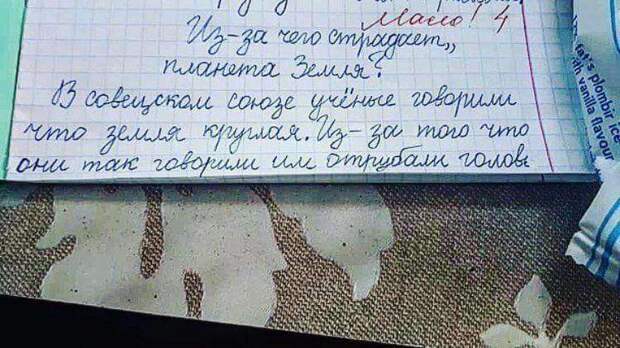 Мало! 4
Из-за чего страдает,,
планета Земля?
В совецском союзе учёные говорили
что земля круглая. Из-за того что
они так говорили им отрубали головы
fat's plombir ice
with vanilla flavour